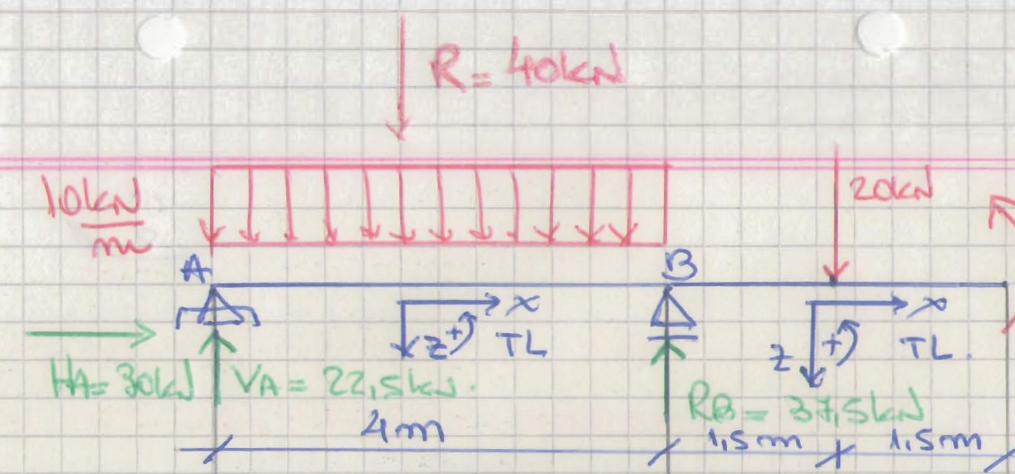 R = 40kN
10kN
m
20kN
A
B
x
x
z
+
TL
z
+
TL.
HA = 30kN
VA = 22,5kN.
RB = 37,5kN
4m
1,5m
1,5m